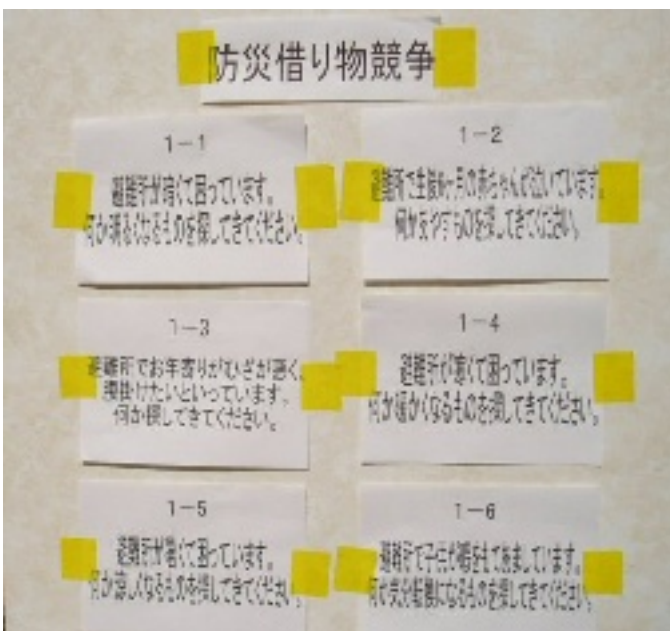 防災借り物競争
1-1
避難所が暗くて困っています。
何か明るくなるものを探してきてください。
1-2
避難所で生後6ヶ月の赤ちゃんが泣いています。
何かあやすものを探してきてください。
1-3
避難所でお年寄りがひざが悪く、
腰掛けたいといっています。
何か探してきてください。
1-4
避難所が寒くて困っています。
何か暖かくなるものを探してきてください。
1-5
避難所が暑くて困っています。
何か涼しくなるものを探してきてください。
1-6
避難所で子供が暇をもてあましています。
何か気分転換になるものを探してきてください。